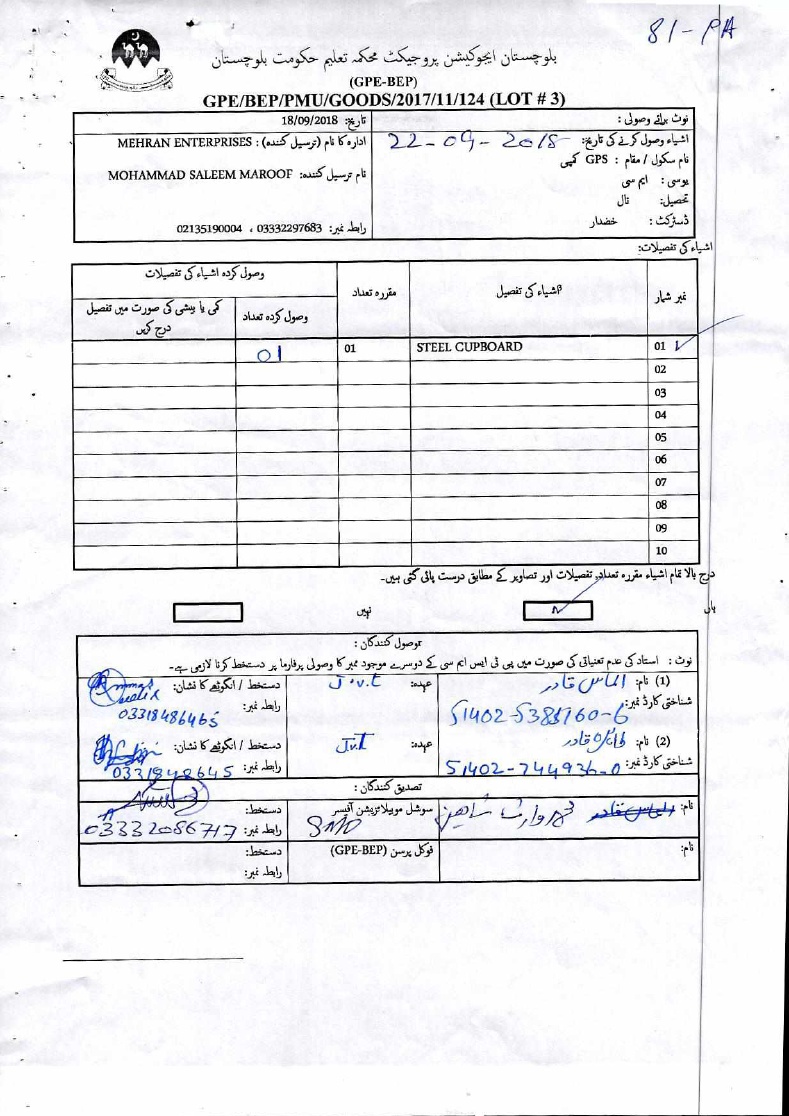 81-PA
بلوچستان ایجوکیشن پروجیکٹ محکمہ تعلیم حکومت بلوچستان
(GPE-BEP)
GPE/BEP/PMU/GOODS/2017/11/124 (LOT # 3)
نوٹ برائے وصولی :
تاریخ: 18/09/2018
اشیاء وصول کرنے کی تاریخ: 22-09-2018
ادارہ کا نام (ترسیل کنندہ) : MEHRAN ENTERPRISES
نام سکول / مقام : GPS کہی
نام ترسیل کنندہ: MOHAMMAD SALEEM MAROOF
یوسی : ایم سی
تحصیل: نال
ڈسٹرکٹ : خضدار
رابطہ نمبر: 03332297683 ، 02135190004
اشیاء کی تفصیلات:
نمبر شمار
اشیاء کی تفصیل
مقررہ تعداد
وصول کردہ اشیاء کی تفصیلات
وصول کردہ تعداد
کمی یا بیشی کی صورت میں تفصیل درج کریں
01 STEEL CUPBOARD 01 01
02
03
04
05
06
07
08
09
10
درج بالا تمام اشیاء مقررہ تعداد، تفصیلات اور تصاویر کے مطابق درست پائی گئی ہیں۔
ہاں
نہیں
وصول کنندگان :
نوٹ : استاد کی عدم تعیناتی کی صورت میں پی ٹی ایس ایم سی کے دوسرے موجود ممبر کا وصولی پرفارما پر دستخط کرنا لازمی ہے۔
(1) نام: الماس قادر
عہدہ: J.v.t
دستخط / انگوٹھے کا نشان:
شناختی کارڈ نمبر:
رابطہ نمبر: 03318486465
(2) نام: قادر
عہدہ: Jvt
دستخط / انگوٹھے کا نشان:
شناختی کارڈ نمبر: 51402-744936-0
رابطہ نمبر: 0331848645
تصدیق کنندگان :
نام: وارث شاھین
سوشل موبیلائزیشن آفیسر
SMO
دستخط:
رابطہ نمبر: 03332086717
نام:
فوکل پرسن (GPE-BEP)
دستخط:
رابطہ نمبر: